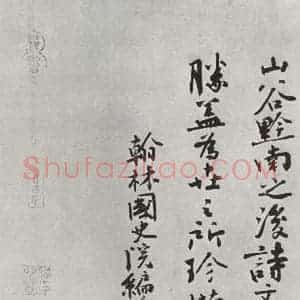 山谷黔南之後詩
勝蓋為世之所珍
翰林國史院編
Shufaziliao.COM